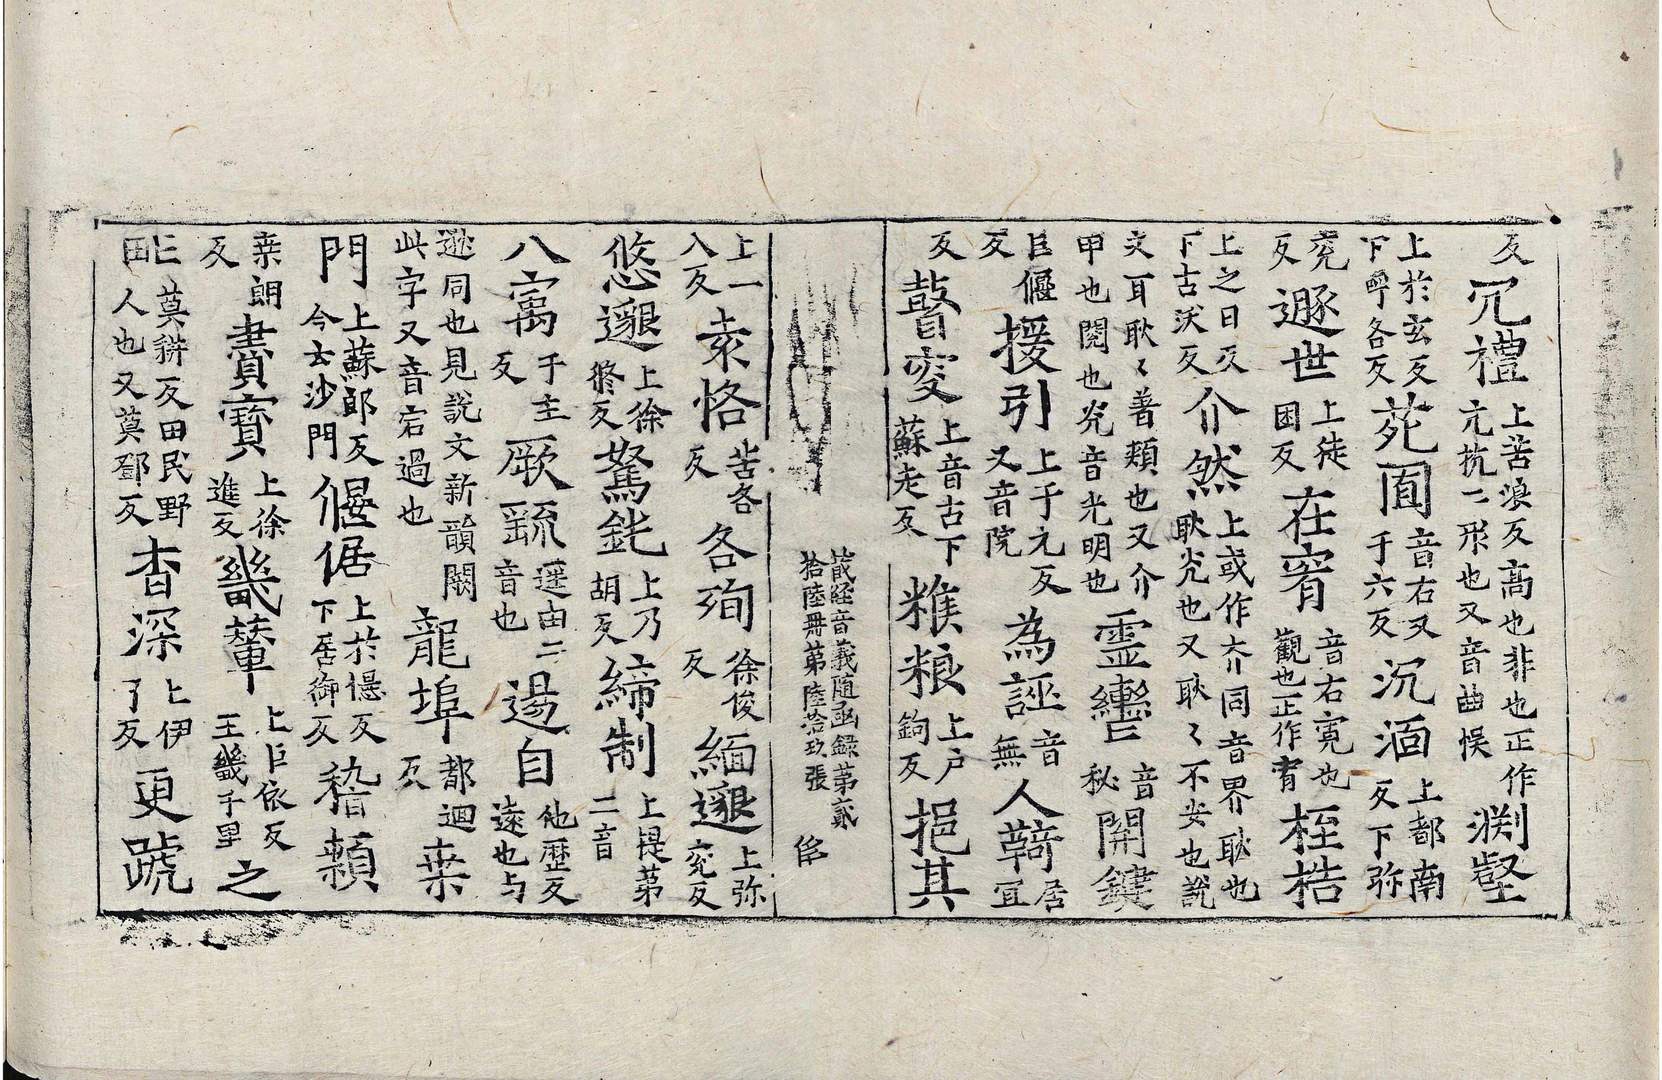 反冗禮上苦浪反高也非也正作亢抗二形也又音曲悮渕壑
上於玄反下郫各反苑囿音右又于六反沉湎上都南反下弥
兖反遯世上徒困反在宥音右寛也觀也正作宥桎梏
上之日反下古沃反介然上或作夰同音界耿也耿光也又耿〻不安也說
文耳耿〻著頰也又介甲也閱也光音光明也靈轡音秘開鍵
巨偃反援引上于元反又音院為誣音無人鞿居宜
反瞽叜上音古下蘇走反糇粮上户鉤反挹其
藏経音義随函録苐貳拾陸冊苐陸拾玖張
上一入反恪苦各反各殉徐俊反緬邈上弥兖反
悠邈上徐修反駑鈍上乃胡反締制上提苐二音
八寓于主反厥䟽遥由二音也逷自他歴反遠也与
逖同也見說文新韻闕此字又音宕過也龍埠都迴反桒
門上蘇郎反今云沙門偃倨上於偃反下居御反稽顙
桒朗反賮寳上徐進反畿輦上巨依反王畿千里之
甿莫耕反田民野人也又莫鄧反杳深上伊了反更號